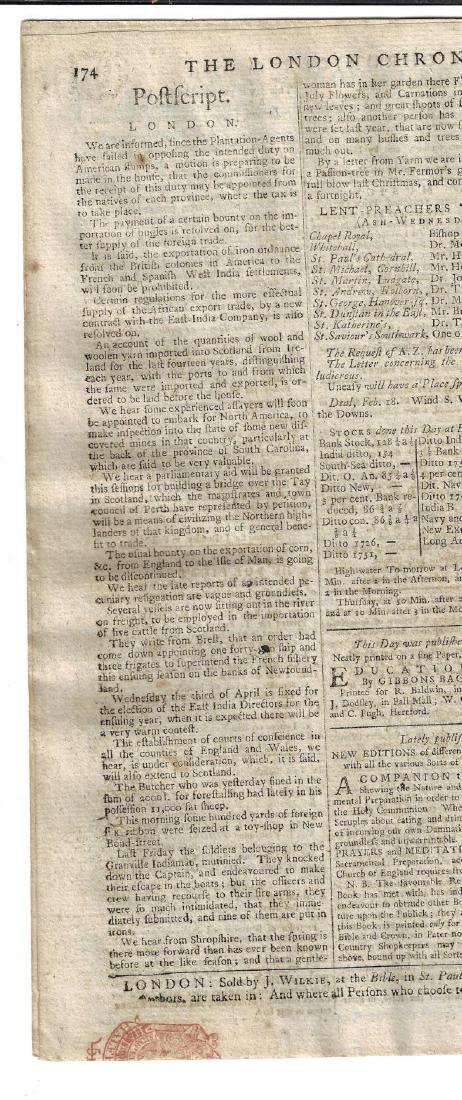 174
THE LONDON CHRON
Postscript.
LONDON.
We are informed, since the Plantation-Agents
have failed in opposing the intended duty on
American stamps, a motion is preparing to be
made in the house, that the commissioners for
the receipt of this duty may be appointed from
the natives of each province, where the tax is
to take place.
The payment of a certain bounty on the im-
portation of bugles is resolved on, for the bet-
ter supply of the foreign trade.
It is said, the exportation of iron ordnance
from the British colonies in America to the
French and Spanish West India settlements,
will soon be prohibited.
Certain regulations for the more effectual
supply of the African export trade, by a new
contract with the East-India Company, is also
resolved on.
An account of the quantities of wool and
woolen yarn imported into Scotland from Ire-
land for the last fourteen years, distinguishing
each year, with the ports to and from which
the same were imported and exported, is or-
dered to be laid before the house.
We hear some experienced assayers will soon
be appointed to embark for North America, to
make inspection into the state of some new dis-
covered mines in that country, particularly at
the back of the province of South Carolina,
which are said to be very valuable.
We hear a parliamentary aid will be granted
this sessions for building a bridge over the Tay
in Scotland, which the magistrates and town
council of Perth have represented by petition,
will be a means of civilizing the Northern high-
landers of that kingdom, and of general bene-
fit to trade.
The usual bounty on the exportation of corn,
&c. from England to the Isle of Man, is going
to be discontinued.
We hear the late reports of an intended pe-
cuniary resignation are vague and groundless.
Several vessels are now fitting out in the river
on freight, to be employed in the importation
of live cattle from Scotland.
They write from Brest, that an order had
come down appointing one forty- ship and
three frigates to superintend the French fishery
this ensuing season on the banks of Newfound-
land.
Wednesday the third of April is fixed for
the election of the East India Directors for the
ensuing year, when it is expected there will be
a very warm contest.
The establishment of courts of conscience in
all the counties of England and Wales, we
hear, is under consideration, which, it is said,
will also extend to Scotland.
The Butcher who was yesterday fined in the
sum of for forestalling had lately in his
possession 11,000 fat sheep.
This morning some hundred yards of foreign
ribbon were seized at a toy-shop in New
Bond-street.
Last Friday the soldiers belonging to the
Granville Indiaman, mutinied. They knocked
down the Captain, and endeavoured to make
their escape in the boats; but the officers and
crew having recourse to their fire arms, they
were so much intimidated, that they imme-
diately submitted, and nine of them are put in
irons.
We hear from Shropshire, that the spring is
there more forward than has ever been known
before at the like season; and that a gentle-
woman has in her garden there F
July Flowers, and Carnations in
new leaves; and great shoots of
trees; also another person has
were set last year, that are now
and on many bushes and trees
much out.
By a letter from Yarm we are i
a Passion-tree in Mr. Fermor's g
full blow last Christmas, and con
a fortnight.
LENT-PREACHERS
(ASH-WEDNESD
Chapel Royal, Bishop
Whitehall, Dr. M
St. Paul's Cathedral, Mr. H
St. Michael, Cornhill, Mr. H
St. Martin, Ludgate, Dr. Jo
St. Andrew, Holborn, Dr. T
St. George, Hanover-sq. Dr. M
St. Dunstan in the East, Mr. B
St. Katherine's, Dr. T
St. Saviour's Southwark, One o
The Request of A. Z. has been
The Letter concerning the
ludicrous.
Uneasy will have a Place sp
Deal, Feb. 18. Wind S. W
the Downs.
STOCKS done this Day at
Bank Stock, Ditto Ind
India ditto, 154 Bank
South-Sea ditto, — Ditto 175
Dit. O. An. 4 per cent
Ditto New, — Dit. Nav
3 per cent. Bank re- Ditto 17
duced, India B.
Ditto con. Navy and
New Ex
Ditto 1726, — Long An
Ditto 1751, —
High-water To-morrow at L
Min. after 2 in the Afternoon, an
2 in the Morning.
Thursday, at 50 Min. after 2
and at 10 Min. after 3 in the Mo
This Day was publishe
Neatly printed on a fine Paper,
EDUCATIO
By GIBBONS BAG
Printed for R. Baldwin, in
J. Dodsley, in Pall Mall; W.
and C. Pugh, Hereford.
Lately publish
NEW EDITIONS of different
with all the various Sorts of
A COMPANION t
Shewing the Nature and
mental Preparation in order to
the Holy Communion. Whe
Scruples about eating and drin
of incurring our own Damnati
groundless and unwarrantable.
PRAYERS and MEDITATI
Sacramental Preparation, acc
Church of England requires fr
N. B. The favourable Re
Book has met with, has ind
endeavour to obtrude other Bo
ture upon the Publick; they a
this Book is printed only for
Bible and Crown, in Pater-no
Country Shopkeepers may
above, bound up with all Sorts
LONDON: Sold by J. WILKIE, at the Bible, in St. Paul
Authors, are taken in: And where all Persons who choose to